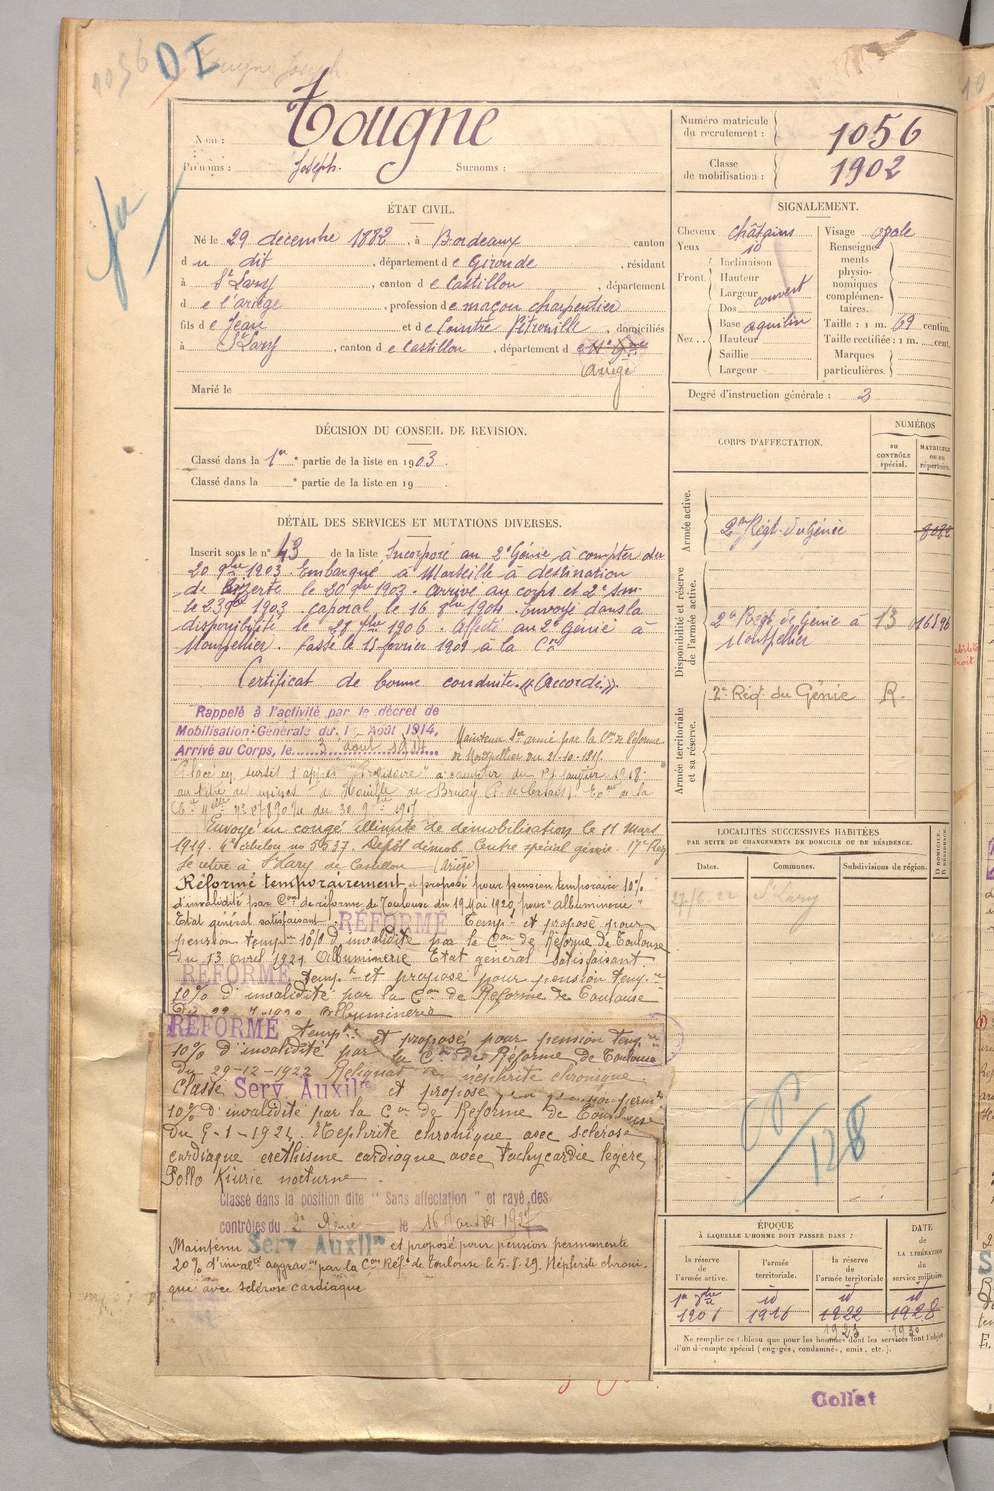 1056 DI Tougne Joseph
Nom : Tougne
Prénoms : Joseph. Surnoms :
Numéro matricule du recrutement : 1056
Classe de mobilisation : 1902
ÉTAT CIVIL.
Né le 29 décembre 1882, à Bordeaux canton
du dit, département de Gironde, résidant
à St Lary, canton de Castillon, département
de l'ariège, profession de maçon charpentier
fils de Jean et de Cointre Pétronille, domiciliés
à St Lary, canton de Castillon, département d
Ariège
Marié le
SIGNALEMENT.
Cheveux châtains
Yeux id
Front. Inclinaison
Hauteur
Largeur couvert
Nez. Dos
Base aquilin
Hauteur
Saillie
Largeur
Visage ovale
Renseignements physionomiques complémentaires.
Taille : 1 m. 69 centim.
Taille rectifiée : 1 m. cent.
Marques particulières.
Degré d'instruction générale : 2
DÉCISION DU CONSEIL DE REVISION.
Classé dans la 1re partie de la liste en 1903.
Classé dans la partie de la liste en 19
CORPS D'AFFECTATION.
NUMÉROS
au CONTRÔLE spécial.
MATRICULE OU AU répertoire.
Armée active.
2me Régt. du Génie
Disponibilité et réserve de l'armée active.
2e Régt de Génie à 13 016596
Montpellier
Armée territoriale et sa réserve.
2e Régt du Génie R.
DÉTAIL DES SERVICES ET MUTATIONS DIVERSES.
Inscrit sous le n° 43 de la liste Incorporé au 2e Génie à compter du
20 9bre 1903. Embarqué à Marseille à destination
de Bizerte le 20 9bre 1903. Arrivé au corps et 2e Sm.
le 23 9bre 1903. caporal le 16 9bre 1904. Envoyé dans la
disponibilité le 28 1906. Affecté au 2e Génie à
Montpellier. Passé le 15 février 1909 à la Cie
Certificat de bonne conduite «Accordé».
Rappelé à l'activité par le décret de
Mobilisation Générale du 1er Août 1914,
Arrivé au Corps, le 3 août 1914
Maintenu Sce armé par la Con de Réforme
de Montpellier du 21.10.1915.
Placé en sursis d'appel "Provisoire" à compter du janvier 1918
au titre des mines de Houille de Bruay (P. de Calais)
du 30. 9bre 1917
Envoyé en congé illimité de démobilisation le 11 Mars
1919. Dépôt démob. Centre spécial génie. 17e Rég
Se retire à St Lary de Castillon (Ariège)
Réformé temporairement et proposé pour pension temporaire 10%
d'invalidité par Con de réforme de Toulouse du 19 Mai 1920, pour "albuminerie"
Etat général satisfaisant. RÉFORMÉ Tempt et proposé pour
pension tempre 10% d'invalidité par la Con de Réforme de Toulouse
du 13 Avril 1921 Albuminerie Etat général satisfaisant
RÉFORMÉ tempt et proposé pour pension temp.re
10% d'invalidité par la Con de Réforme de Toulouse
Albuminerie
RÉFORMÉ tempt et proposé pour pension temp.
10% d'invalidité par la Con de Réforme de Toulouse
du 29-12-1922 Reliquat de néphrite chronique.
Classé Serv Auxilre et proposé pour pension perm
10% d'invalidité par la Con de Réforme de Toulouse
du 9-1-1924. Néphrite chronique avec sclérose
cardiaque éréthisme cardiaque avec tachycardie légère,
Pollo Kiurie nocturne.
Classé dans la position dite "Sans affectation" et rayé des
contrôles du 2e Génie le 16 1927
Maintenu Serv Auxilre et proposé pour pension permanente
20% d'invalté aggravon par la Con Réf. de Toulouse le 5.8.29. Néphrite chroni-
que avec sclérose cardiaque
LOCALITÉS SUCCESSIVES HABITÉES
PAR SUITE DE CHANGEMENTS DE DOMICILE OU DE RÉSIDENCE.
Dates. Communes. Subdivisions de région. D. DOMICILE. R. RÉSIDENCE.
27/6. 22 St Lary
CP/128
ÉPOQUE
À LAQUELLE L'HOMME DOIT PASSER DANS :
la réserve de l'armée active.
l'armée territoriale.
la réserve de l'armée territoriale
DATE DE LA LIBÉRATION du service militaire.
1er 8bre id id id
1906 1916 1922 1928
1923 1930
Ne remplir ce tableau que pour les hommes dont les services font l'objet
d'un décompte spécial (engagés, condamnés, omis, etc.).
Collat